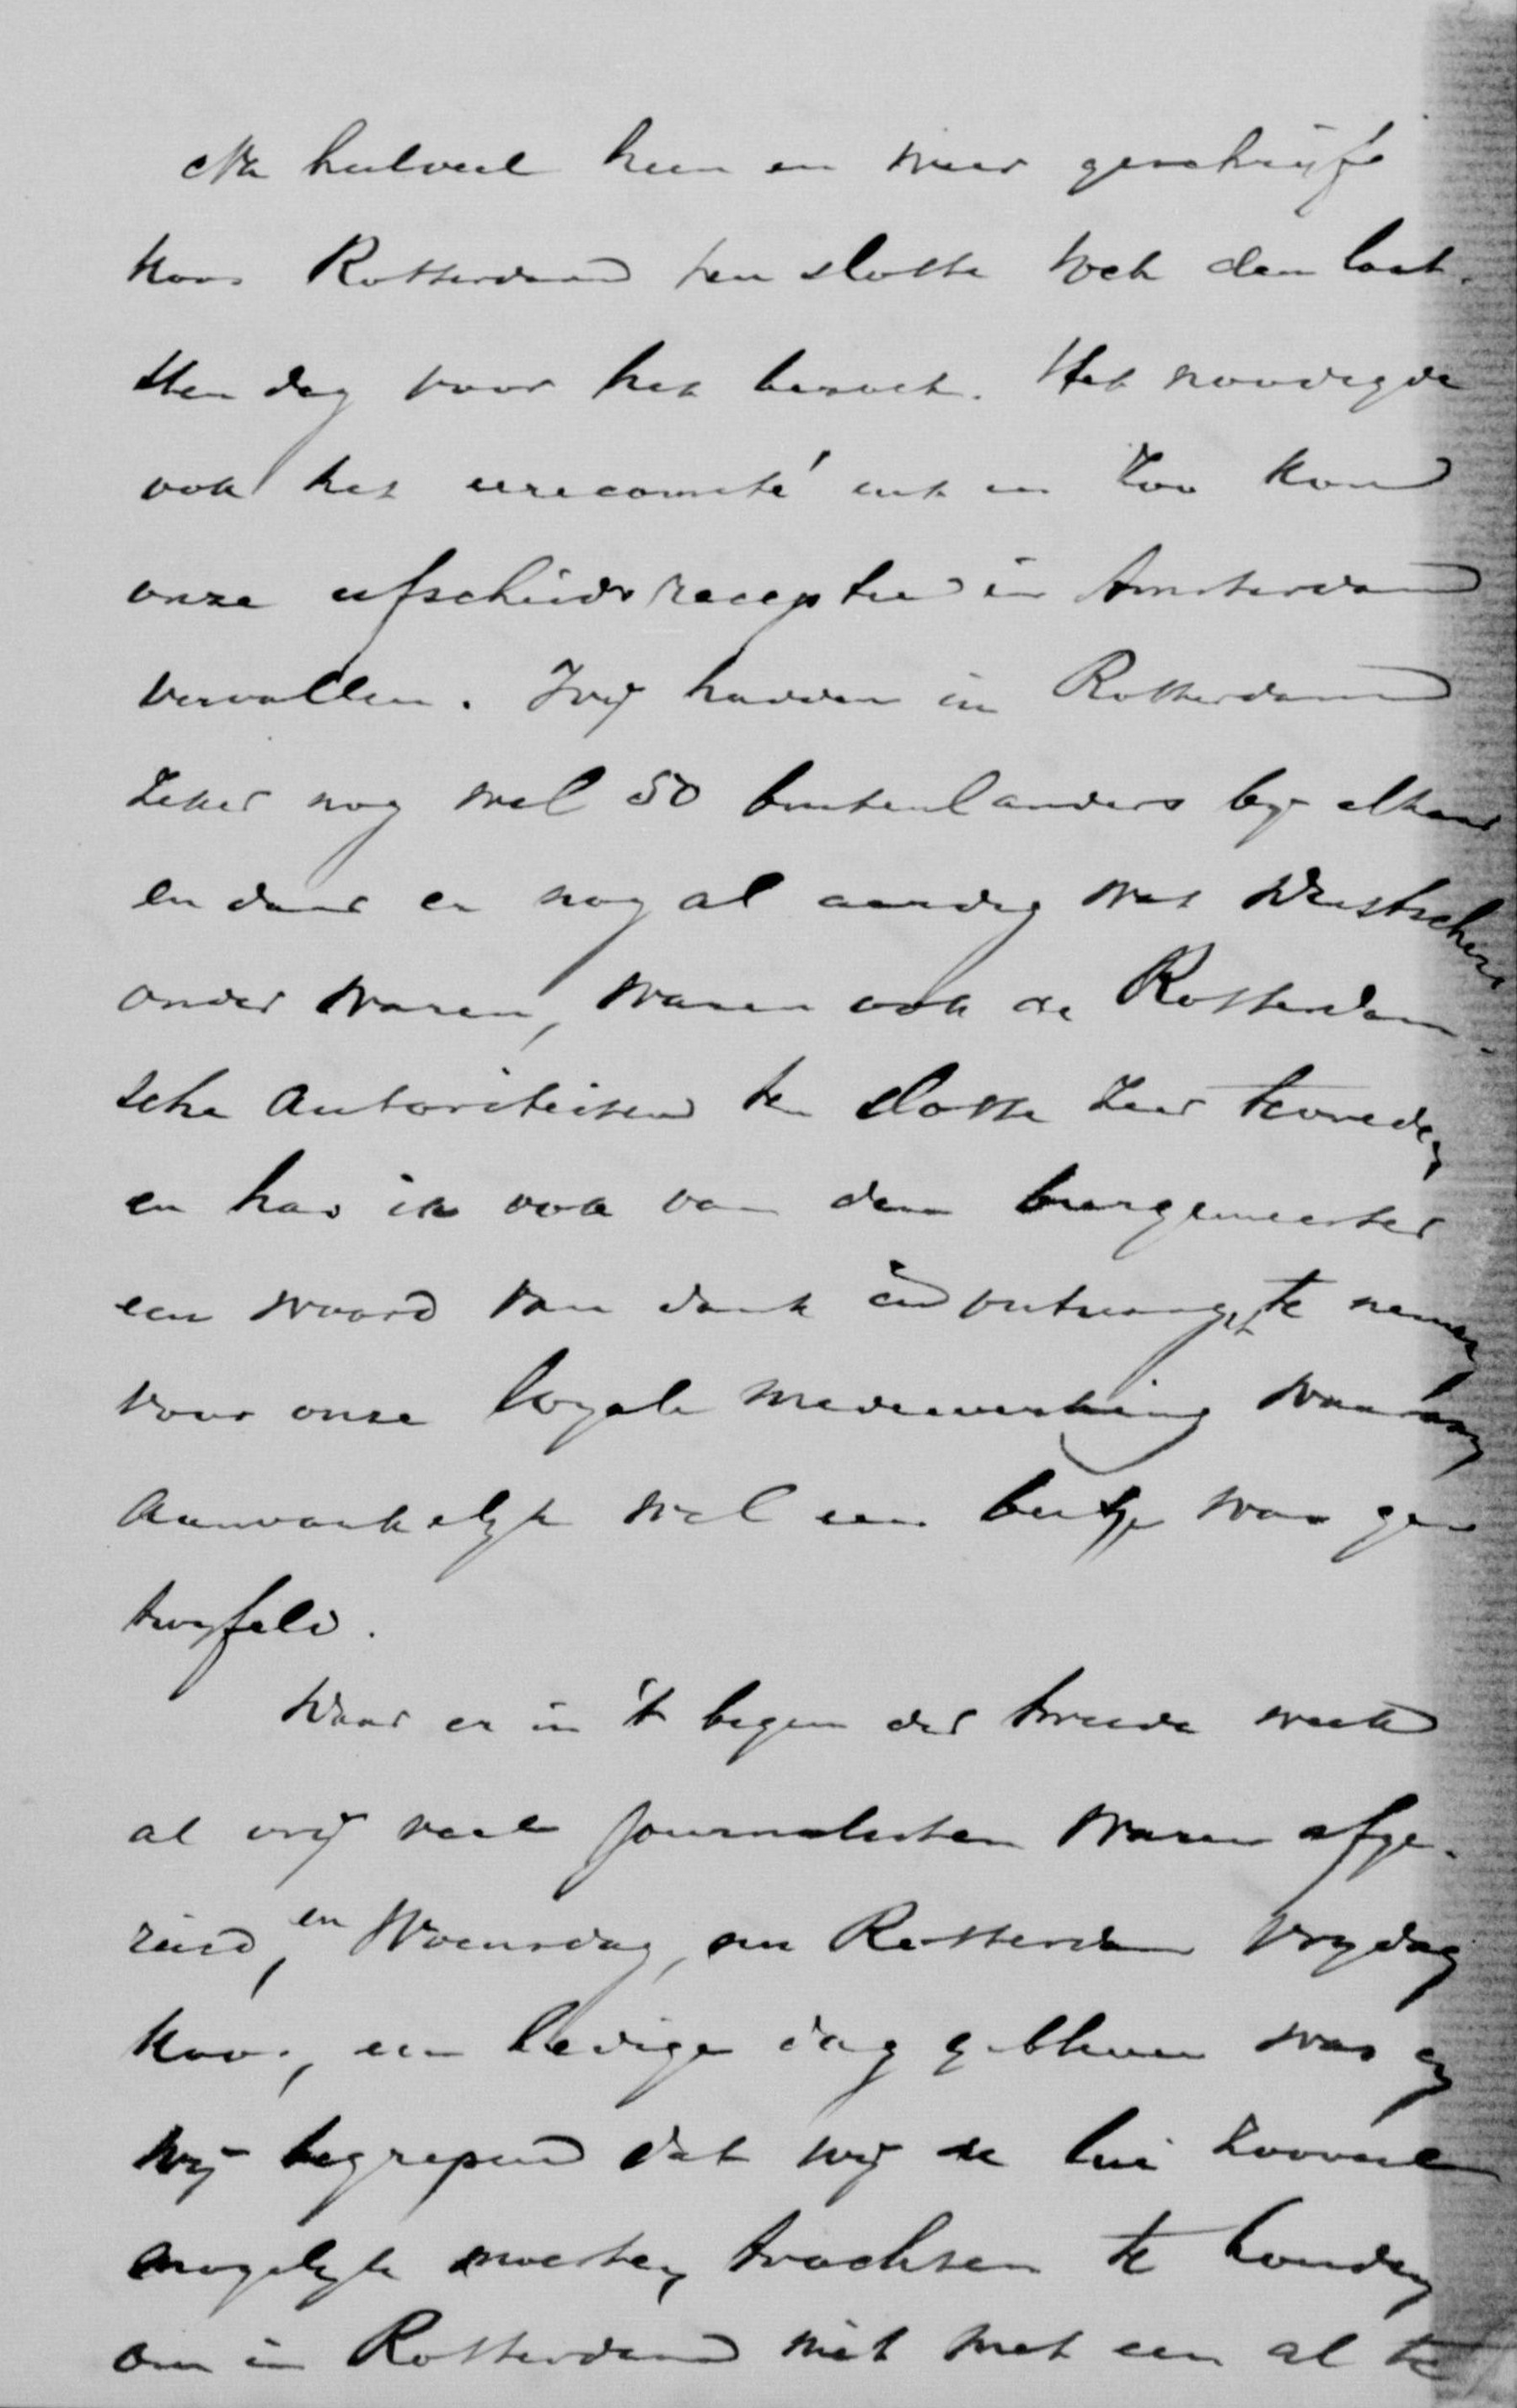 Na heel veel heen en weer geschrijf
koos Rotterdam ten slotte toch den laat-
sten dag voor het bezoek. Het noodigde
ook het eerecomité uit en zoo kon
onze afscheidsreceptie in Amsterdam
vervallen. Wij hadden in Rotterdam
zeker nog wel 50 buitenlanders bij elkaar
en daar er nog al aardig wat Duitschers
onder waren, waren ook de Rotterdam-
sche autoriteiten ten slotte zeer tevreden
en had ik ook van den burgemeester
een woord van dank in ontvangst te nemen
voor onze loyale medewerking waaraan
aanvankelijk wel een beetje was ge
twijfeld.
Daar er in 't begin der tweede week
al vrij veel journalisten waren afge-
reisd, en Woensdag, nu Rotterdam Vrijdag
koos, een ledige dag gebleven was en
wij begrepen dat wij de lui zooveel
mogelijk moesten trachten te houden
om in Rotterdam niet met een al te